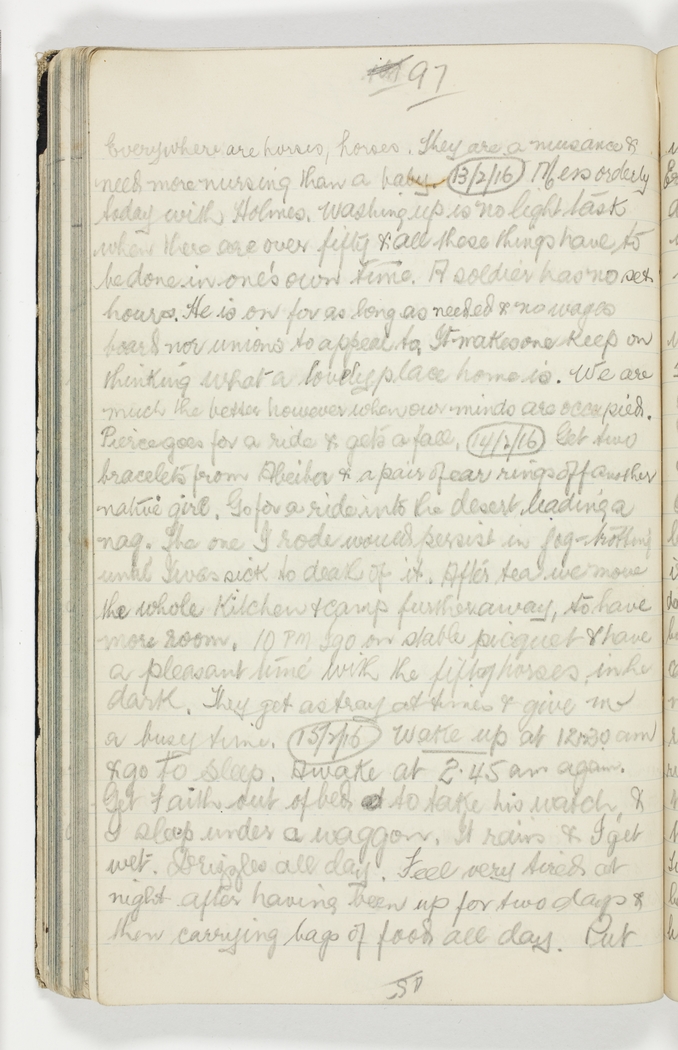 97
Everywhere are horses, horses. They are a nuisance &
need more nursing than a baby. 13/2/16 Mess orderly
today with Holmes. Washing up is no light task
when there are over fifty & all these things have to
be done in one's own time. A soldier has no set
hours. He is on for as long as needed & no wages
board nor unions to appeal to. It makes one keep on
thinking what a lovely place home is. We are
much the better however when our minds are occupied.
Pierce goes for a ride & gets a fall. 14/2/16 Get two
bracelets from & a pair of ear rings off another
native girl. Go for a ride into the desert leading a
nag. The one I rode would persist in jog-trotting
until I was sick to death of it. After tea we move
the whole Kitchen & camp further away, to have
more room. 10 PM I go on stable picquet & have
a pleasant time with the fifty horses in the
dark. They get astray at times & give me
a busy time. 15/2/16 Wake up at 12.30 am
& go to sleep. Awake at 2.45 am again.
Get Faith out of bed to take his watch, &
I sleep under a waggon. It rains & I get
wet. Drizzles all day. Feel very tired at
night after having been up for two days &
then carrying bags of food all day. Put
50